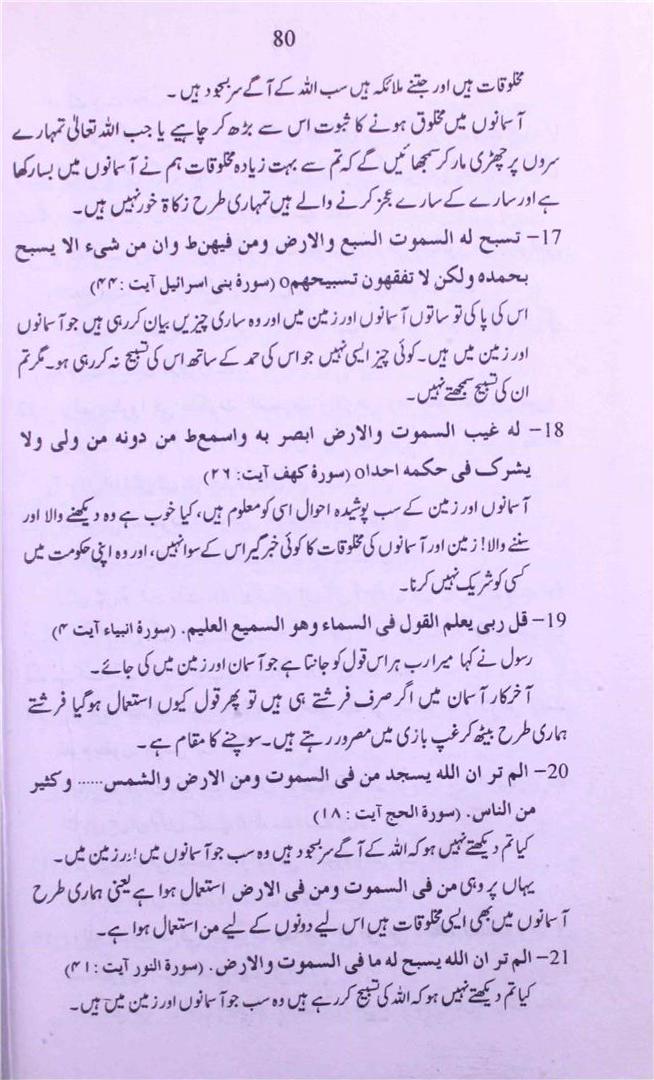 80
مخلوقات ہیں اور جتنے ملائکہ ہیں سب اللہ کے آگے سربسجود ہیں ۔
آسمانوں میں مخلوق ہونے کا ثبوت اس سے بڑھ کر چاہیے یا جب اللہ تعالیٰ تمہارے
سروں پر چھڑی مار کر سمجھائیں گے کہ تم سے بہت زیادہ مخلوقات ہم نے آسمانوں میں بسا رکھا
ہے اور سارے کے سارے عجز کرنے والے ہیں تمہاری طرح زکاۃ خور نہیں ہیں۔
17- تسبح له السموت السبع والارض ومن فيهن ط وان من شىء الا يسبح
بحمده ولكن لا تفقهون تسبيحهم o (سورۃ بنی اسرائیل آیت :۴۴)
اس کی پاکی تو ساتوں آسمانوں اور زمین میں اور وہ ساری چیزیں بیان کر رہی ہیں جو آسمانوں
اور زمین میں ہیں۔ کوئی چیز ایسی نہیں جو اس کی حمد کے ساتھ اس کی تسبیح نہ کر رہی ہو۔ مگر تم
ان کی تسبیح سمجھتے نہیں۔
18- له غيب السموت والارض ابصر به واسمع ط من دونه من ولى ولا
يشرک فى حكمه احدا o (سورۃ کھف آیت: ۲۶)
آسمانوں اور زمین کے سب پوشیدہ احوال اسی کو معلوم ہیں، کیا خوب ہے وہ دیکھنے والا اور
سننے والا! زمین اور آسمانوں کی مخلوقات کا کوئی خبر گیر اس کے سوا نہیں، اور وہ اپنی حکومت میں
کسی کو شریک نہیں کرتا۔
19- قل ربى يعلم القول فى السماء وهو السميع العليم. (سورۃ انبیاء آیت ۴)
رسول نے کہا میرا رب ہر اس قول کو جانتا ہے جو آسمان اور زمین میں کی جائے۔
آخر کار آسمان میں اگر صرف فرشتے ہی ہیں تو پھر قول کیوں استعمال ہو گیا فرشتے
ہماری طرح بیٹھ کر غپ بازی میں مصرور رہتے ہیں۔ سوچنے کا مقام ہے۔
20- الم تر ان الله يسجد من فى السموت ومن الارض والشمس...... و كثير
من الناس. (سورۃ الحج آیت : ۱۸)
کیا تم دیکھتے نہیں ہو کہ اللہ کے آگے سر بسجود ہیں وہ سب جو آسمانوں میں اور زمین میں۔
یہاں پر وہی من فی السموت ومن فی الارض استعمال ہوا ہے یعنی ہماری طرح
آسمانوں میں بھی ایسی مخلوقات ہیں اس لیے دونوں کے لیے من استعمال ہوا ہے۔
21- الم تر ان الله يسبح له ما فى السموت والارض. (سورۃ النور آیت: ۴۱)
کیا تم دیکھتے نہیں ہو کہ اللہ کی تسبیح کر رہے ہیں وہ سب جو آسمانوں اور زمین میں ہیں۔